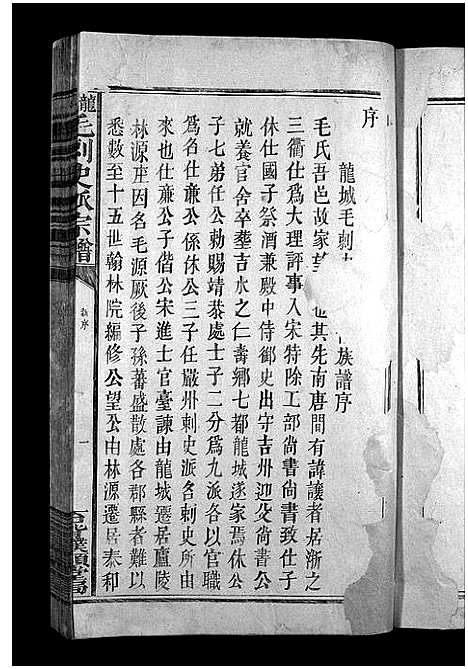 序
龍城毛刺史 族譜序
毛氏吾邑故家望 也其先南唐間有諱護者居浙之
三衢仕爲大理評事入宋特除工部尚書尚書致仕子
休仕國子祭酒兼殿中侍御史出守吉州迎父尚書公
就養官舍卒葬吉水之仁壽鄉七都龍城遂家焉休公
子七弟任公勅賜靖恭處士子二分爲九派各以官職
爲名仕亷公係休公三子任嚴州刺史派名刺史所由
來也仕亷公子偕公宋進士官臺諫由龍城遷居廬陵
林源坪因名毛源厥後子孫蕃盛散處各郡縣者難以
悉數至十五世翰林院編修公望公由林源遷居泰和
龍 毛刺史派宗譜
序
一